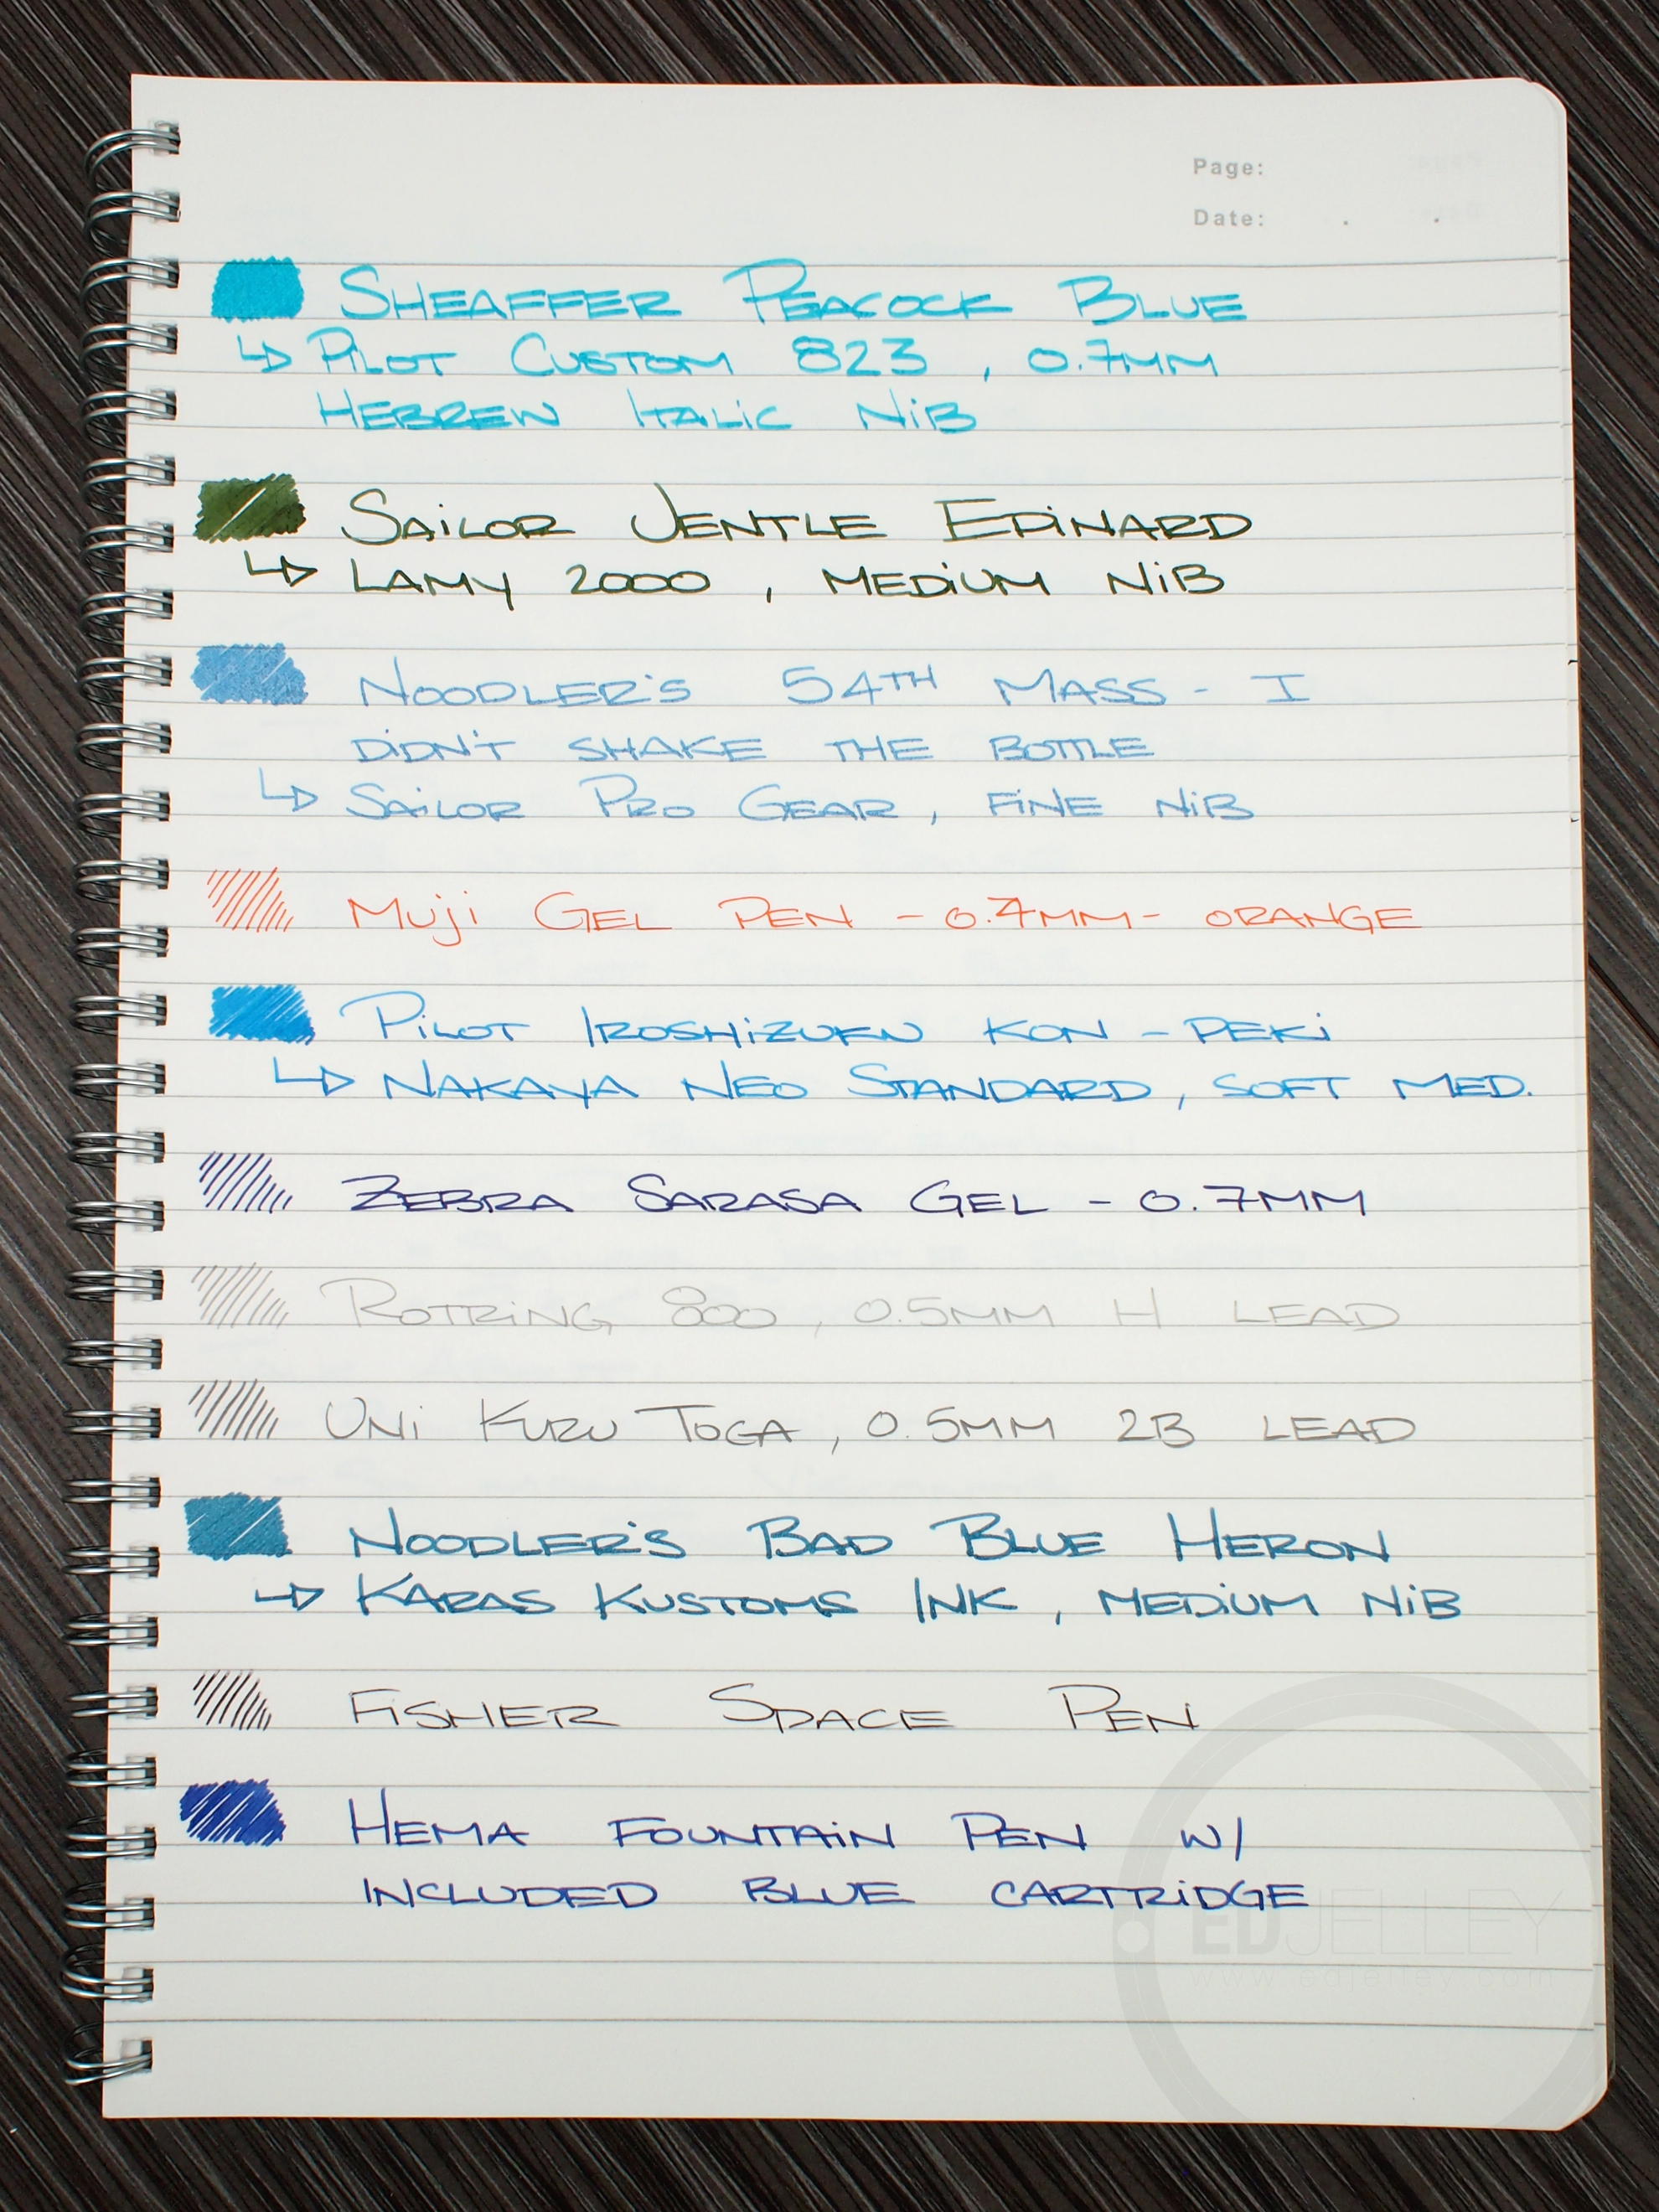 Page:
Date: . .
SHEAFFER PEACOCK BLUE
↳ PILOT CUSTOM 823, 0.7MM
HEBREW ITALIC NIB
SAILOR JENTLE EPINARD
↳ LAMY 2000, MEDIUM NIB
NOODLER'S 54TH MASS - I
DIDN'T SHAKE THE BOTTLE
↳ SAILOR PRO GEAR, FINE NIB
MUJI GEL PEN - 0.7MM - ORANGE
PILOT IROSHIZUKU KON-PEKI
↳ NAKAYA NEO STANDARD, SOFT MED.
ZEBRA SARASA GEL - 0.7MM
ROTRING 800, 0.5MM H LEAD
UNI KURU TOGA, 0.5MM 2B LEAD
NOODLER'S BAD BLUE HERON
↳ KARAS KUSTOMS INK, MEDIUM NIB
FISHER SPACE PEN
HEMA FOUNTAIN PEN W/
INCLUDED BLUE CARTRIDGE
EDJELLEY
www.edjelley.com